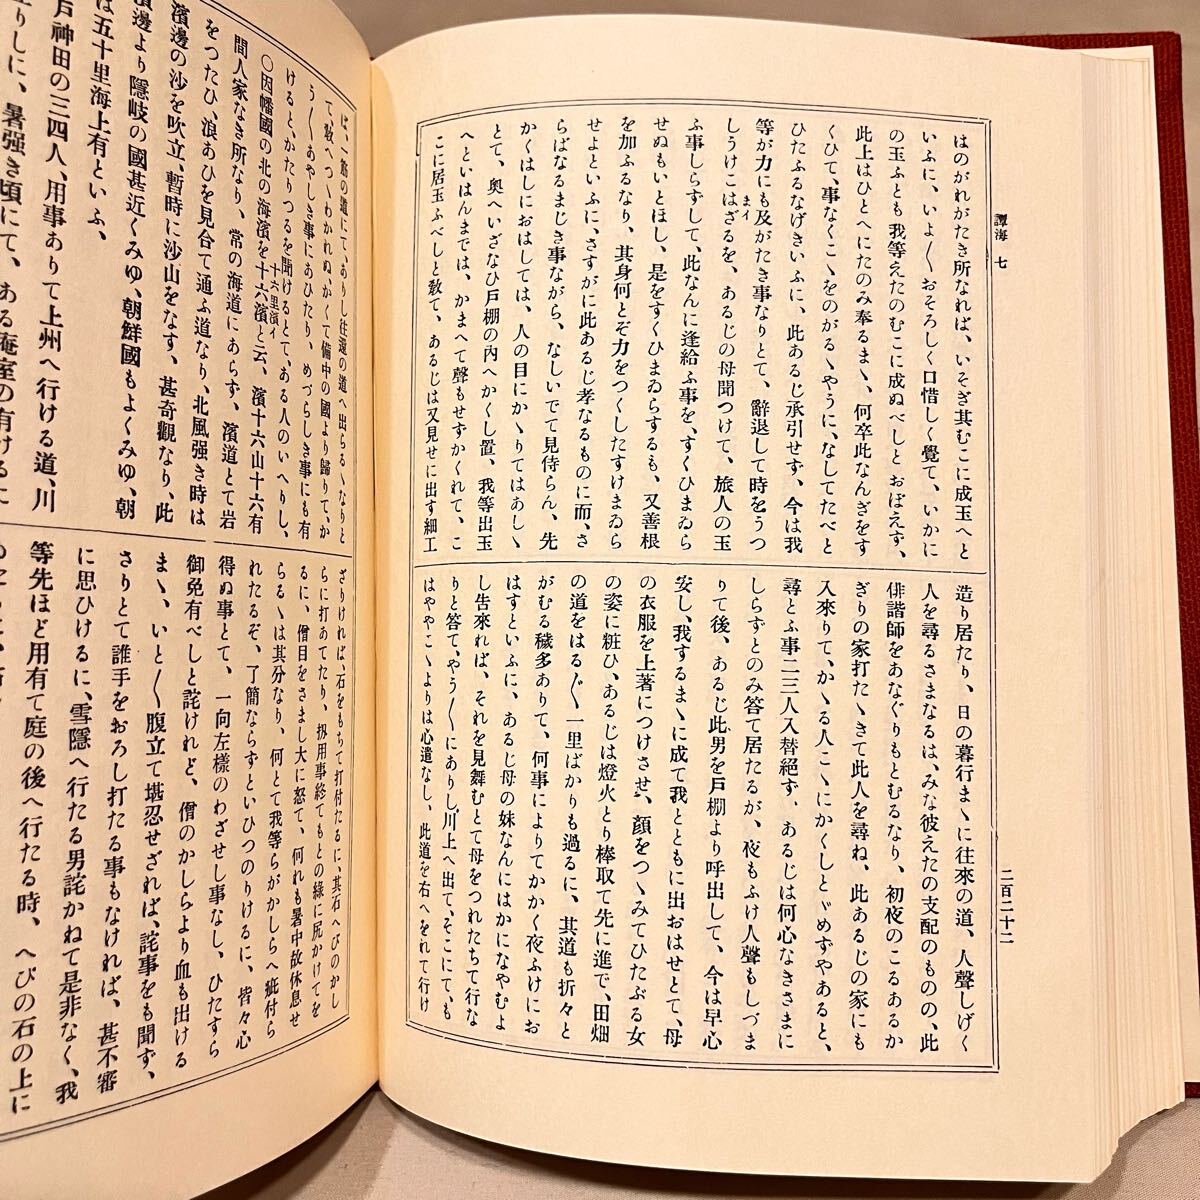 譚海 七
二百二十二
はのがれがたき所なれば、いそぎ其むこに成玉へと
いふに、いよ〳〵おそろしく口惜しく覺て、いかに
の玉ふとも我等えたのむこに成ぬべしとおぼえず、
此上はひとへにたのみ奉るまゝ、何卒此なんぎをす
くひて、事なくこゝをのがるゝやうに、なしてたべと
ひたふるなげきいふに、此あるじ承引せず、今は我
等が力にも及がたき事なりとて、辭退して時をうつ
まイ
しうけこはざるを、あるじの母聞つけて、旅人の玉
ふ事しらずして、此なんに逢給ふ事を、すくひまゐら
せぬもいとほし、是をすくひまゐらするも、又善根
を加ふるなり、其身何とぞ力をつくしたすけまゐら
せよといふに、さすがに此あるじ孝なるものに而、さ
らばなるまじき事ながら、なしいでて見侍らん、先
かくはしにおはしては、人の目にかゝりてはあしゝ
とて、奧へいざなひ戸棚の内へかくし置、我等出玉
へといはんまでは、かまへて聲もせずかくれて、こ
こに居玉ふべしと敎て、あるじは又見せに出す細工
造り居たり、日の暮行まゝに往來の道、人聲しげく
人を尋るさまなるは、みな彼えたの支配のものの、此
俳諧師をあなぐりもとむるなり、初夜のころあるか
ぎりの家打たゝきて此人を尋ね、此あるじの家にも
入來りて、かゝる人こゝにかくしとゞめずやあると、
尋とふ事二三人入替絶ず、あるじは何心なきさまに
しらずとのみ答て居たるが、夜もふけ人聲もしづま
りて後、あるじ此男を戸棚より呼出して、今は早心
安し、我するまゝに成て我とともに出おはせとて、母
の衣服を上著につけさせ、顔をつゝみてひたぶる女
の姿に粧ひ、あるじは燈火とり棒取て先に進で、田畑
の道をはる〴〵一里ばかりも過るに、其道も折々と
がむる穢多ありて、何事によりてかかく夜ふけにお
はすといふに、あるじ母の妹なんにはかになやむよ
し告來れば、それを見舞むとて母をつれたちて行な
りと答て、やう〳〵にありし川上へ出て、そこにて、も
はやこゝよりは心遣なし、此道を右へをれて行け
ば、一筋の道にて、ありし往還の道へ出らるゝなりと
て、敎へつゝわかれぬ、かくて備中の國より歸りて、か
う〳〵あやしき事にあひたり、めづらしき事にも有
けると、かたりつるを聞けるとて、ある人のいへりし、
○因幡國の北の海濱を十六濱と云、濱十六山十六有
十六里濱イ
間人家なき所なり、常の海道にあらず、濱道とて岩
をつたひ、浪あひを見合て通ふ道なり、北風强き時は
濱邊の沙を吹立、暫時に沙山をなす、甚奇觀なり、此
濱邊より隱岐の國甚近くみゆ、朝鮮國もよくみゆ、朝
は五十里海上有といふ、
戸神田の三四人、用事ありて上州へ行ける道、川
りしに、暑强き頃にて、ある庵室の有けるに
ざりければ、石をもちて打付たるに、其石へびのかし
らに打あてたり、扨用事終てもとの緣に尻かけてを
るに、僧目をさまし大に怒て、何れも暑中故休息せ
らるゝは其分なり、何とて我等がかしらへ疵付ら
れたるぞ、了簡ならずといひつのりけるに、皆々心
得ぬ事とて、一向左樣のわざせし事なし、ひたすら
御免有べしと詫けれど、僧のかしらより血も出ける
まゝ、いと〳〵腹立て堪忍せざれば、詫事をも聞ず、
さりとて誰手をおろし打たる事もなければ、甚不審
に思ひけるに、雪隱へ行たる男詫かねて是非なく、我
等先ほど用有て庭の後へ行たる時、へびの石の上に